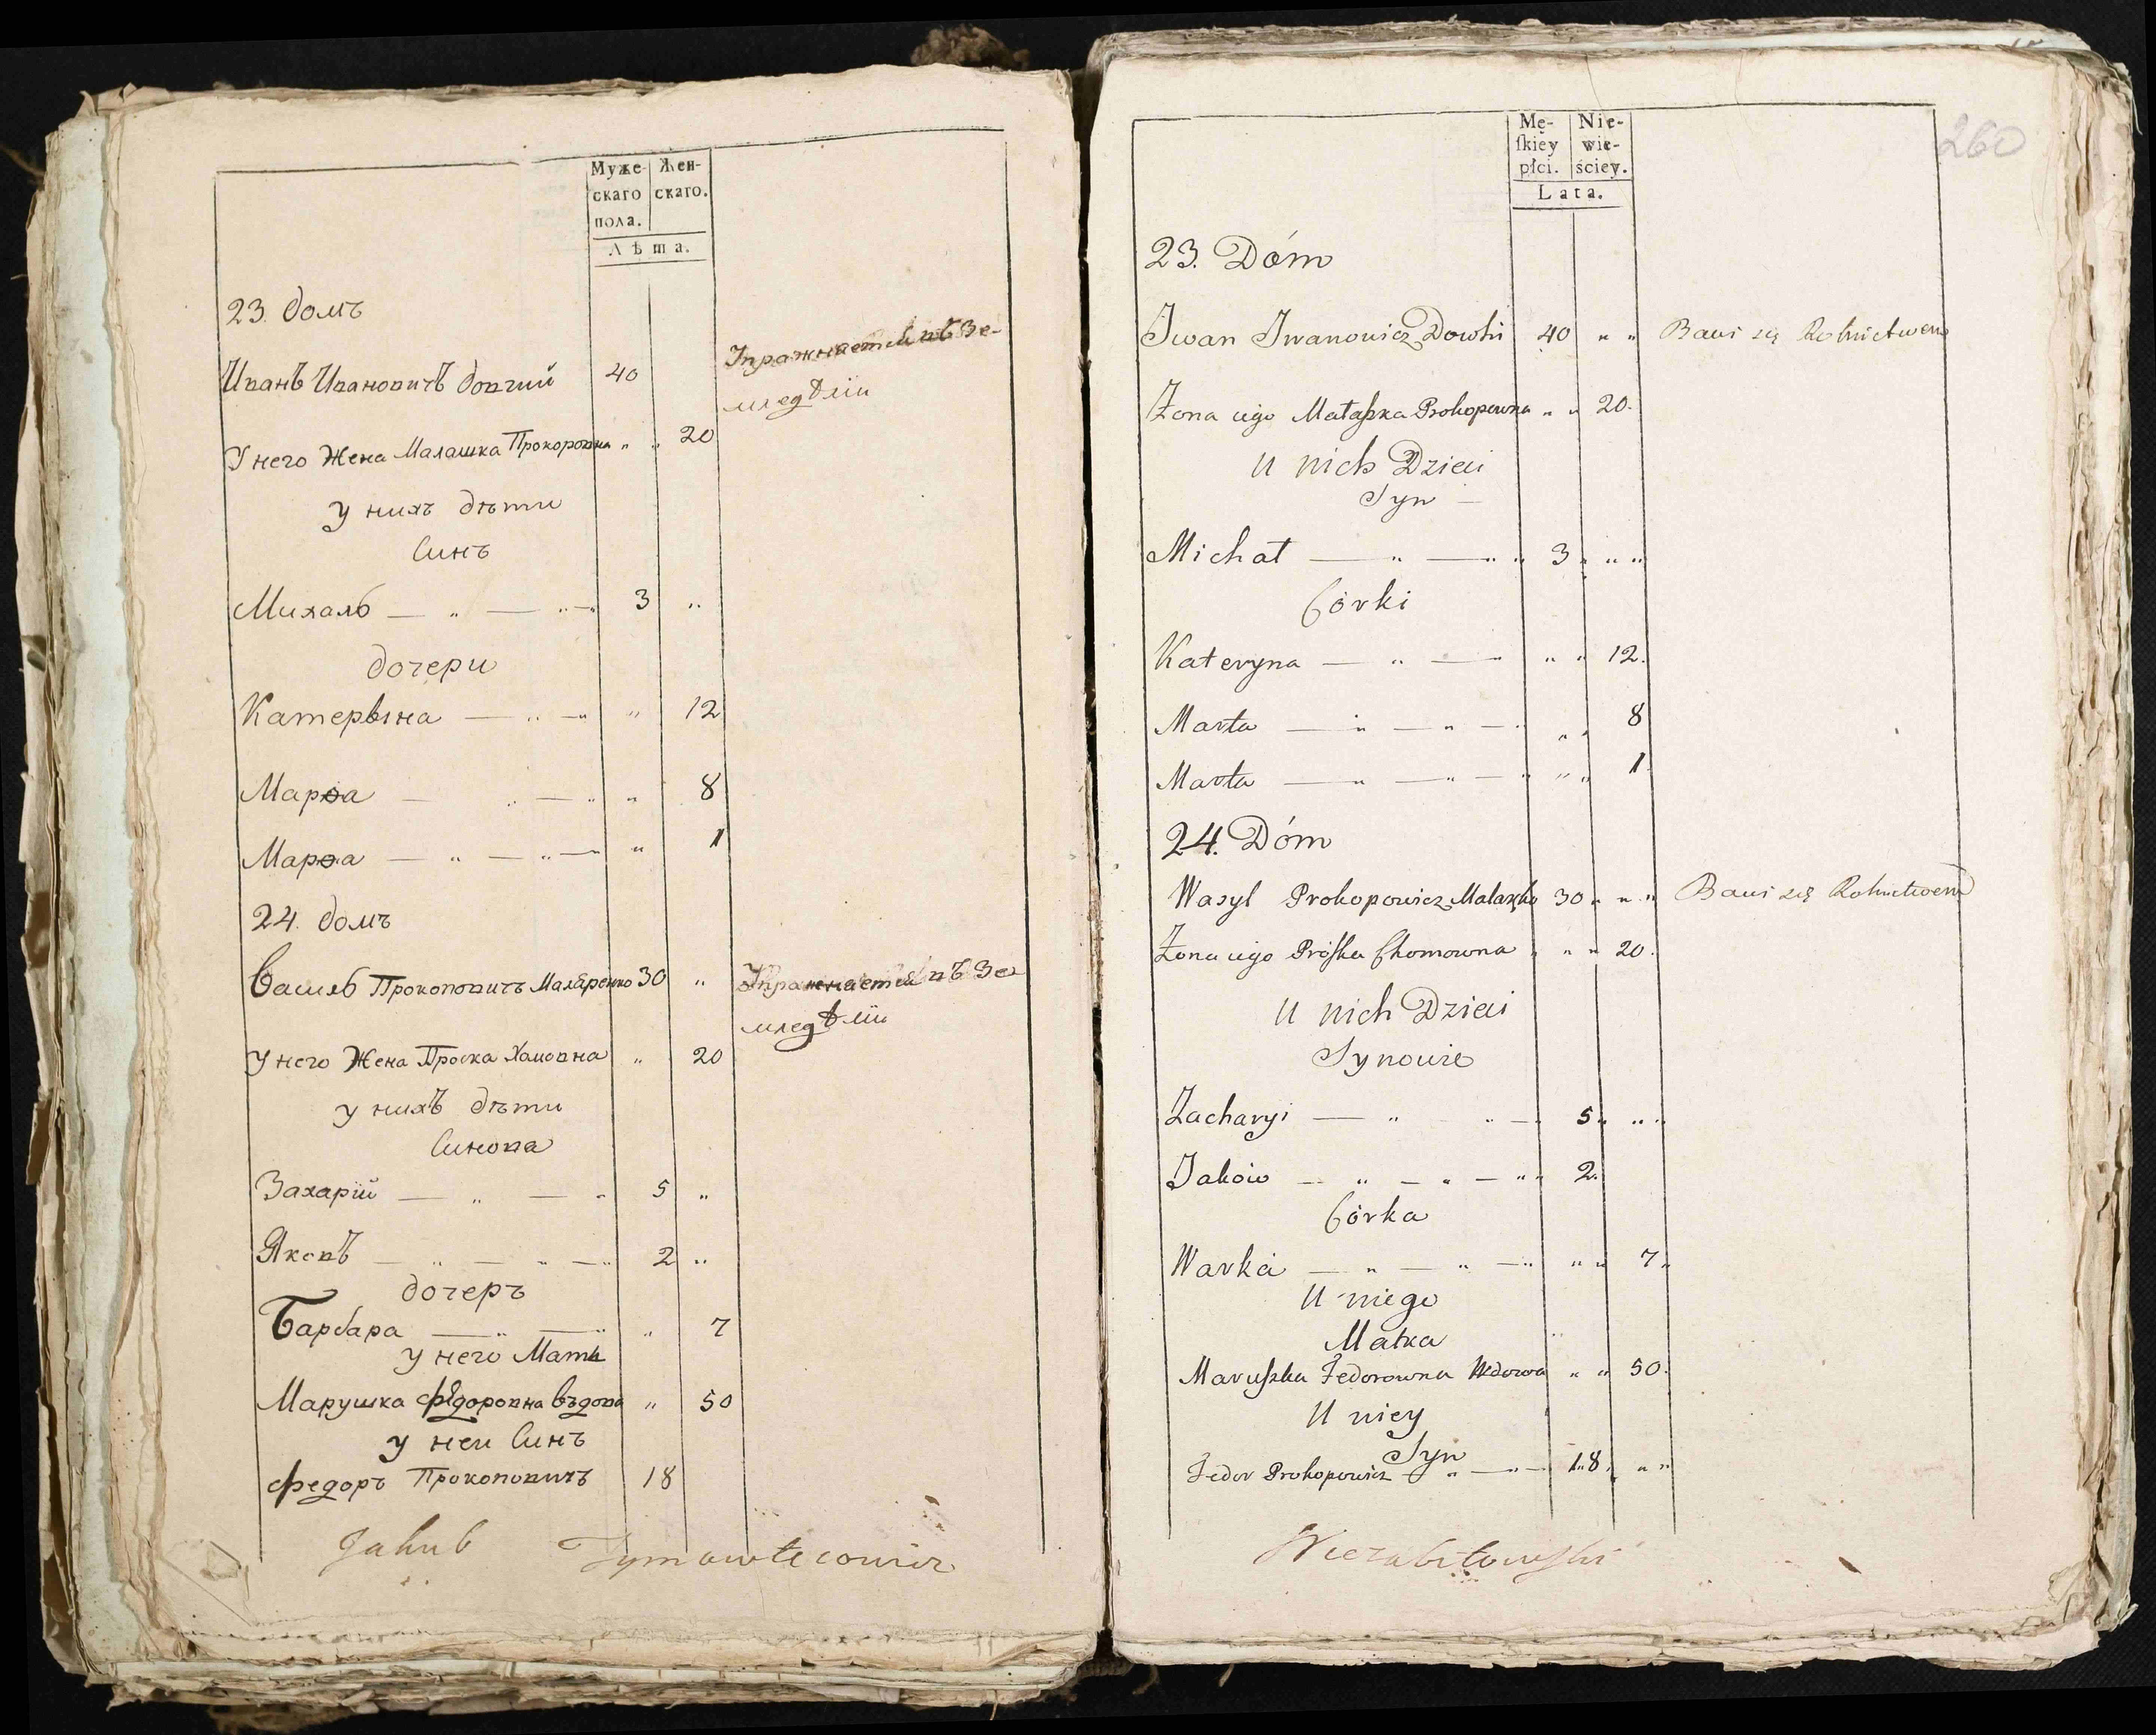 Муже-
скаго
пола.
Жен-
скаго.
Лѣта.
23. домъ
Иванъ Ивановичъ довгий 40
Упражняется въ Зе-
мледѣлiи
У него Жена Малашка Прокоровна „ „ 20
у нихъ дѣти
Синъ
Михалъ — „ — „ — 3 „
дочери
Катерына — „ — „ „ 12
Марѳа — „ — „ „ 8
Марѳа — „ — „ — „ „ 1
24. домъ
Василь Прокоповичъ Маляренко 30 „
Упражняется въ Зе
мледѣлiи
У него Жена Проска Хомовна „ 20
у нихъ дѣти
Синова
Захарiй — „ — „ 5 „
Яковъ — „ — „ — „ 2 „
дочеръ
Барбара — „ — „ „ 7
у него Мать
Марушка Федоровна въдова „ 50
у неи Синъ
Федоръ Прокоповичъ 18
Jakub
260
Mę-
ſkiey
płci.
Nie-
wie-
ściey.
Lata.
23. Dóm
Jwan Jwanowicz Dowhi 40 „ „ Bawi się Rolnictwem
Żona iego Małaszka Prokopowna „ „ 20.
U nich Dzieci
Syn —
Michał — „ — „ „ 3 „ „ „
Córki
Kateryna — „ — „ „ „ 12.
Marta — „ — „ — „ „ „ 8
Marta — „ — „ — „ „ „ 1.
24. Dóm
Wasyl Prokopowicz 30 „ „ „ Bawi się Rolnictwem
Żona iego Prośka Chomowna „ „ „ 20.
U nich Dzieci
Synowie
Zacharyi — „ „ — 5 „ „ „
Jakow — „ — „ — „ „ 2.
Córka
Warka — „ — „ — „ „ „ 7 „
U niego
Matka
Maruszka Fedorowna Wdowa „ „ 50.
U niey
Syn
Fedor Prokopowicz — „ — „ — 18. „ „